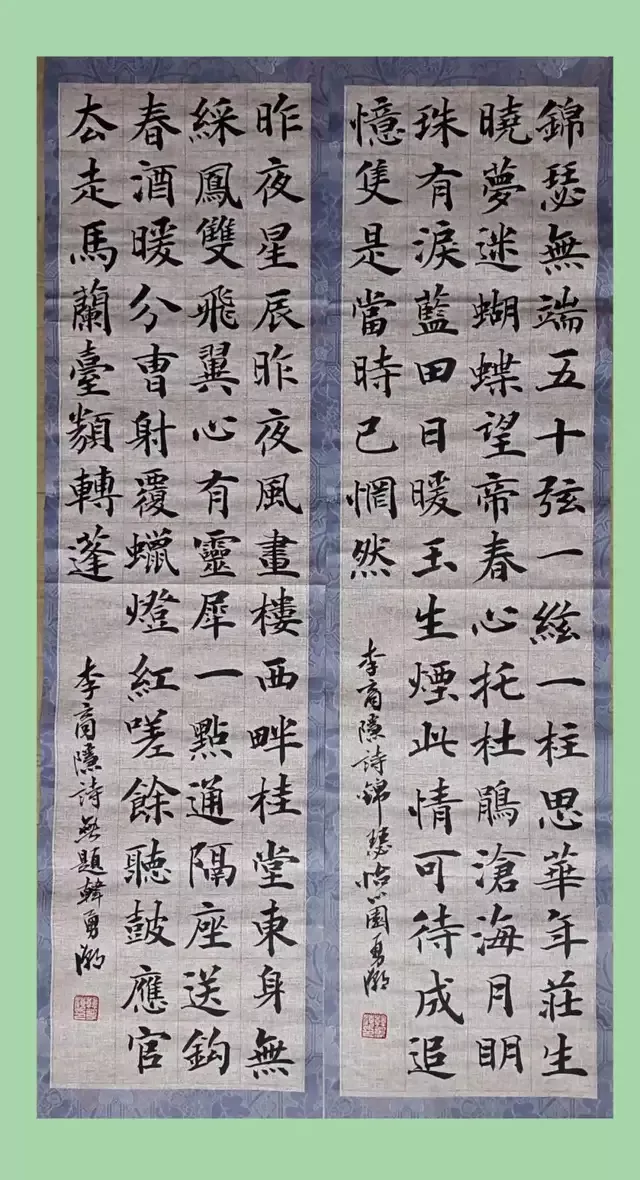 錦瑟無端五十弦一絃一柱思華年莊生
曉夢迷蝴蝶望帝春心托杜鵑滄海月眀
珠有淚藍田日暖玉生煙此情可待成追
憶隻是當時已惘然
李商隱詩錦瑟
昨夜星辰昨夜風畫樓西畔桂堂東身無
綵鳳雙飛翼心有靈犀一點通隔座送鈎
春酒暖分曹射覆蠟燈紅嗟餘聽鼓應官
去走馬蘭臺類轉蓬
李商隱詩無題韓勇